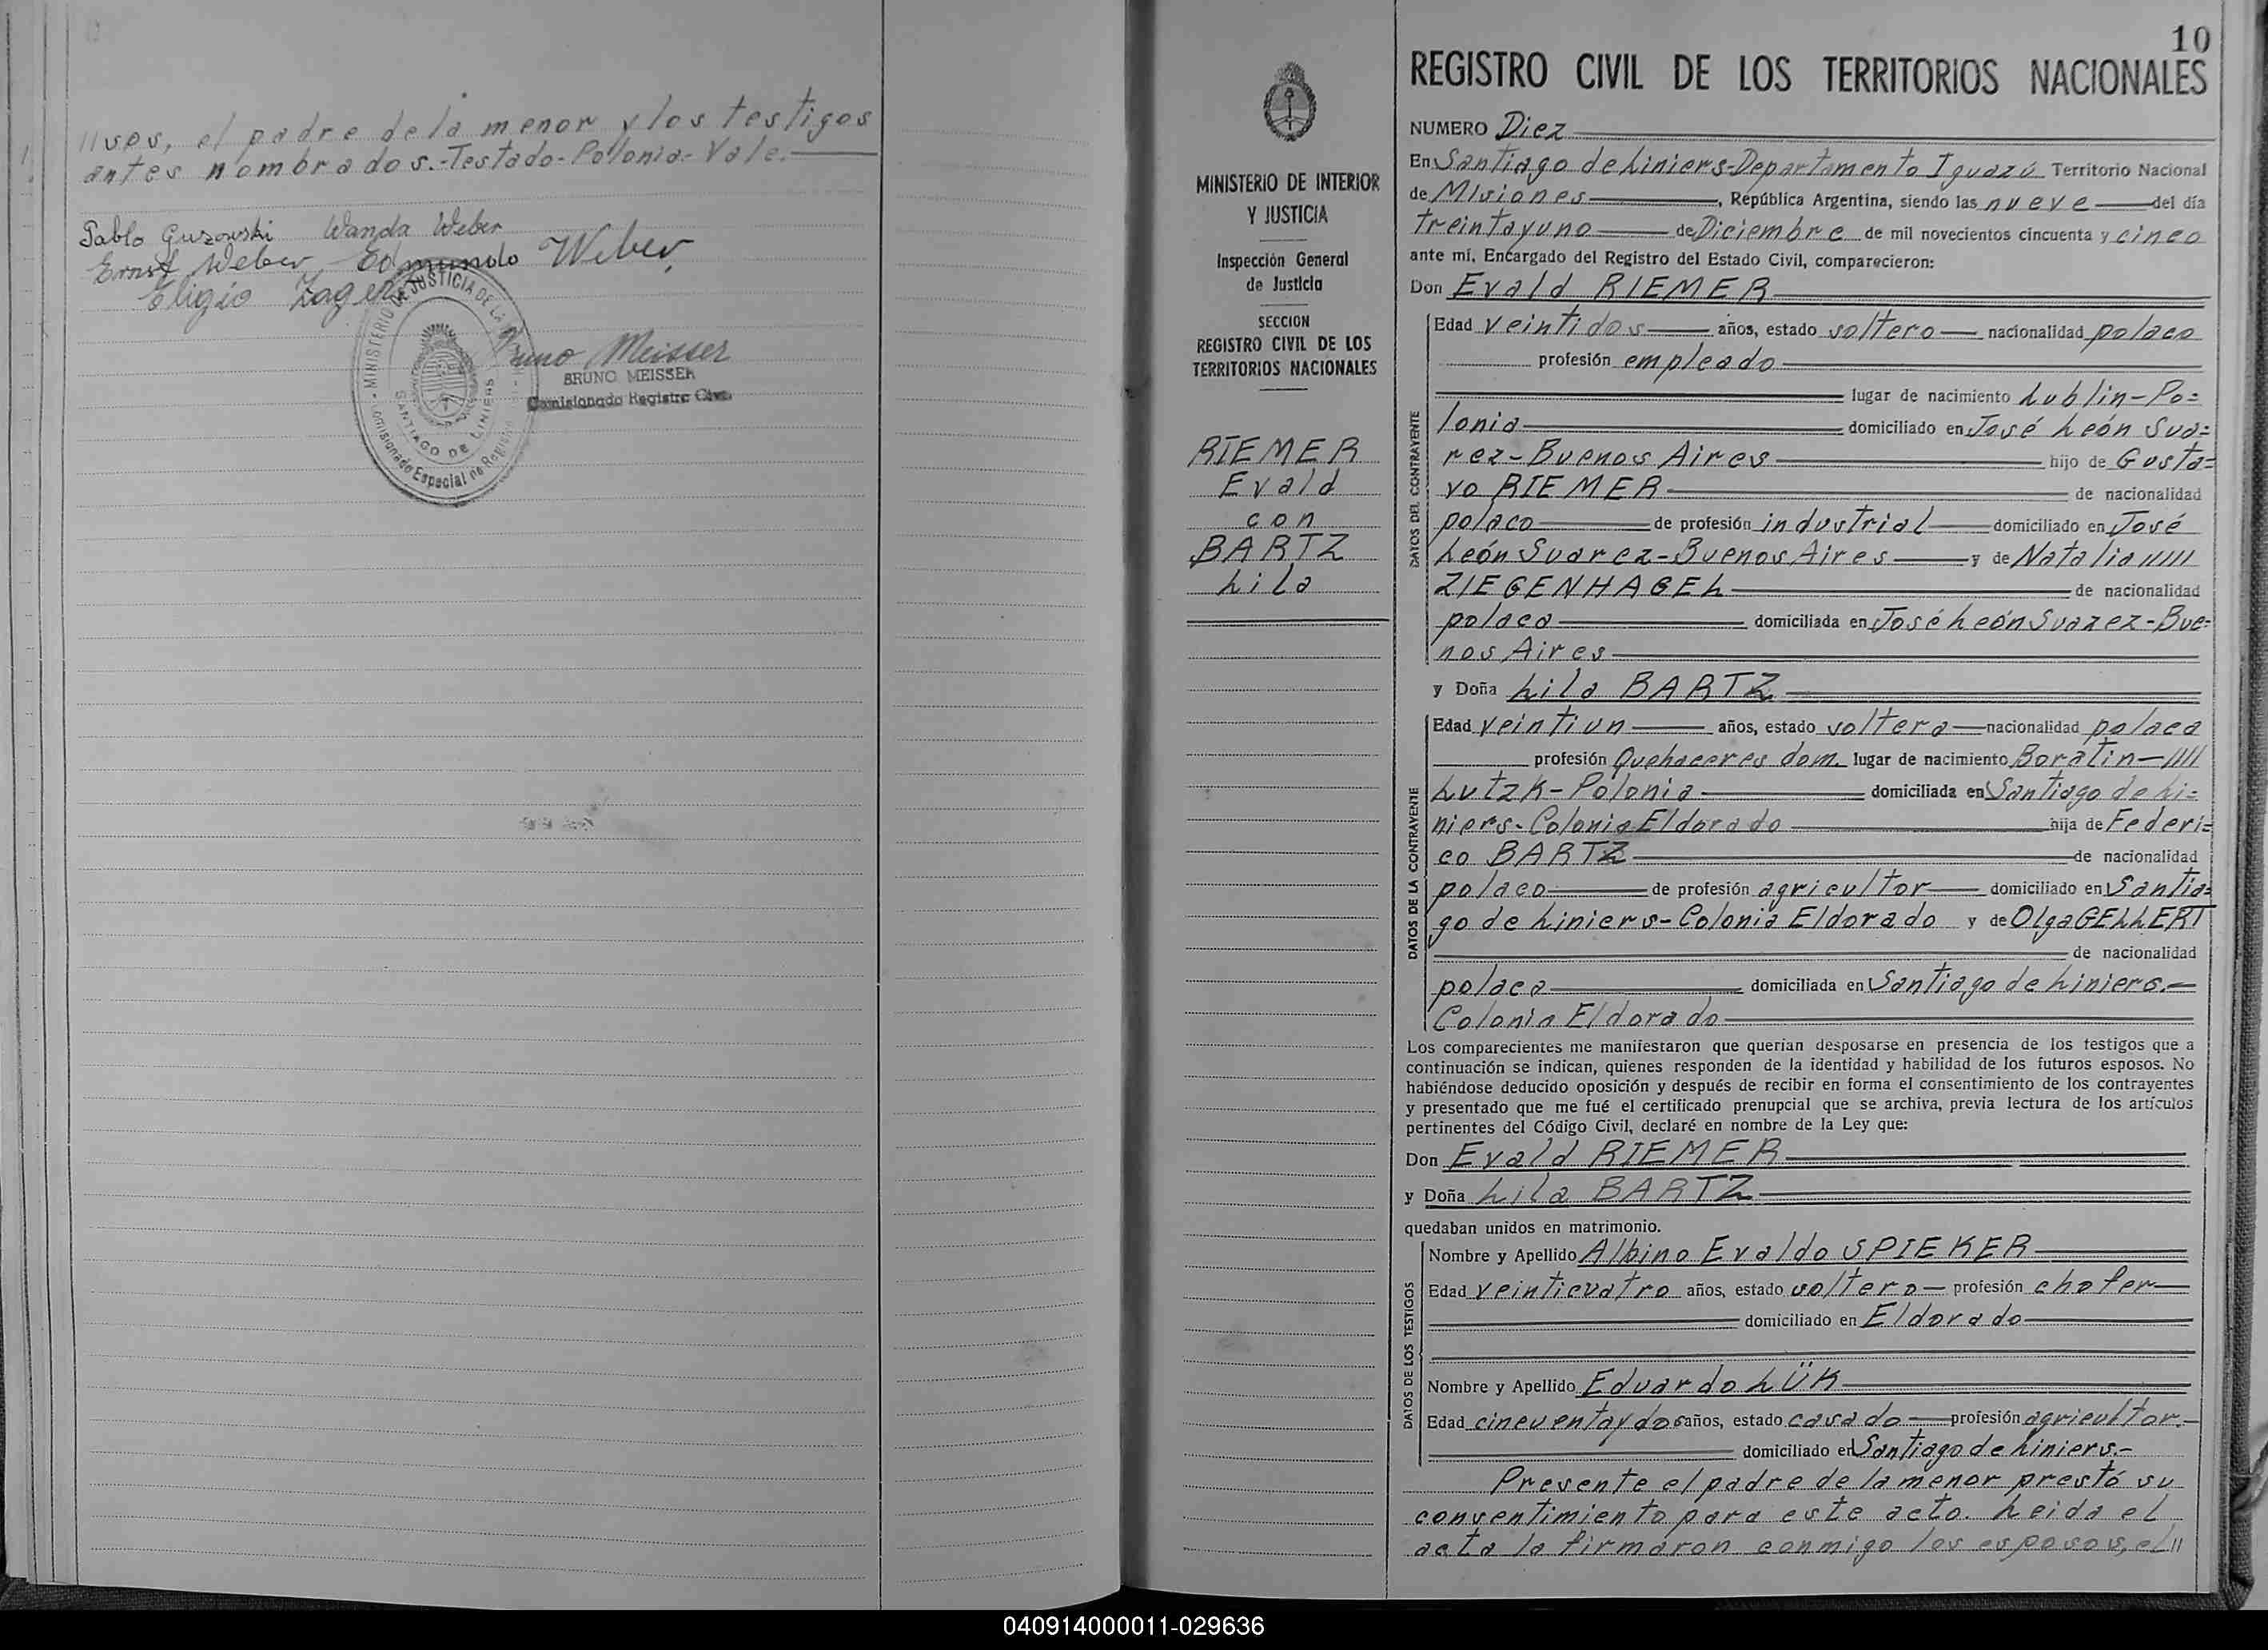 //sos, el padre de la menor y los testigos
antes nombrados.-Testado-Polonia-Vale.
Pablo Guzowski Wanda Weber
Ernst Weber Edmundo Weber
Eligio
Bruno Meisser
BRUNO MEISSER
Comisionado Registro Civil
MINISTERIO DE JUSTICIA DE LA
SANTIAGO DE LINIERS
Comisionado Especial no Region
MINISTERIO DE INTERIOR
Y JUSTICIA
Inspección General
de Justicia
SECCION
REGISTRO CIVIL DE LOS
TERRITORIOS NACIONALES
RIEMER
Evald
con
BARTZ
Lila
10
REGISTRO CIVIL DE LOS TERRITORIOS NACIONALES
NUMERO Diez
En Santiago de Liniers-Departamento Iguazú Territorio Nacional
de Misiones, República Argentina, siendo las nueve del día
treintayuno de Diciembre de mil novecientos cincuenta y cinco
ante mí, Encargado del Registro del Estado Civil, comparecieron:
Don Evald RIEMER
DATOS DEL CONTRAYENTE
Edad veintidos años, estado soltero nacionalidad polaco
profesión empleado
lugar de nacimiento Lublin-Po=
lonia domiciliado en José León Sua=
rez-Buenos Aires hijo de Gusta=
vo RIEMER de nacionalidad
polaco de profesión industrial domiciliado en José
León Suarez-Buenos Aires y de Natalia /////
ZIEGENHAGEL de nacionalidad
polaca domiciliada en José León Suarez-Bue=
nos Aires
y Doña Lila BARTZ
DATOS DE LA CONTRAYENTE
Edad veintiun años, estado soltera nacionalidad polaca
profesión Quehaceres dom. lugar de nacimiento Boratin-////
Lutzk-Polonia domiciliada en Santiago de Li=
niers-Colonia Eldorado hija de Federi=
co BARTZ de nacionalidad
polaco de profesión agricultor domiciliado en Santia=
go de Liniers-Colonia Eldorado y de Olga GELLERT
de nacionalidad
polaca domiciliada en Santiago de Liniers.-
Colonia Eldorado
Los comparecientes me manifestaron que querían desposarse en presencia de los testigos que a
continuación se indican, quienes responden de la identidad y habilidad de los futuros esposos. No
habiéndose deducido oposición y después de recibir en forma el consentimiento de los contrayentes
y presentado que me fué el certificado prenupcial que se archiva, previa lectura de los artículos
pertinentes del Código Civil, declaré en nombre de la Ley que:
Don Evald RIEMER
y Doña Lila BARTZ
quedaban unidos en matrimonio.
DATOS DE LOS TESTIGOS
Nombre y Apellido Albino Evaldo SPIEKER
Edad veinticuatro años, estado soltero profesión chofer
domiciliado en Eldorado
Nombre y Apellido Eduardo LÜK
Edad cincuentaydos años, estado casado profesión agricultor.-
domiciliado en Santiago de Liniers.-
Presente el padre de la menor prestó su
consentimiento para este acto. Leida el
acta la firmaron conmigo los esposos, el //
040914000011-029636